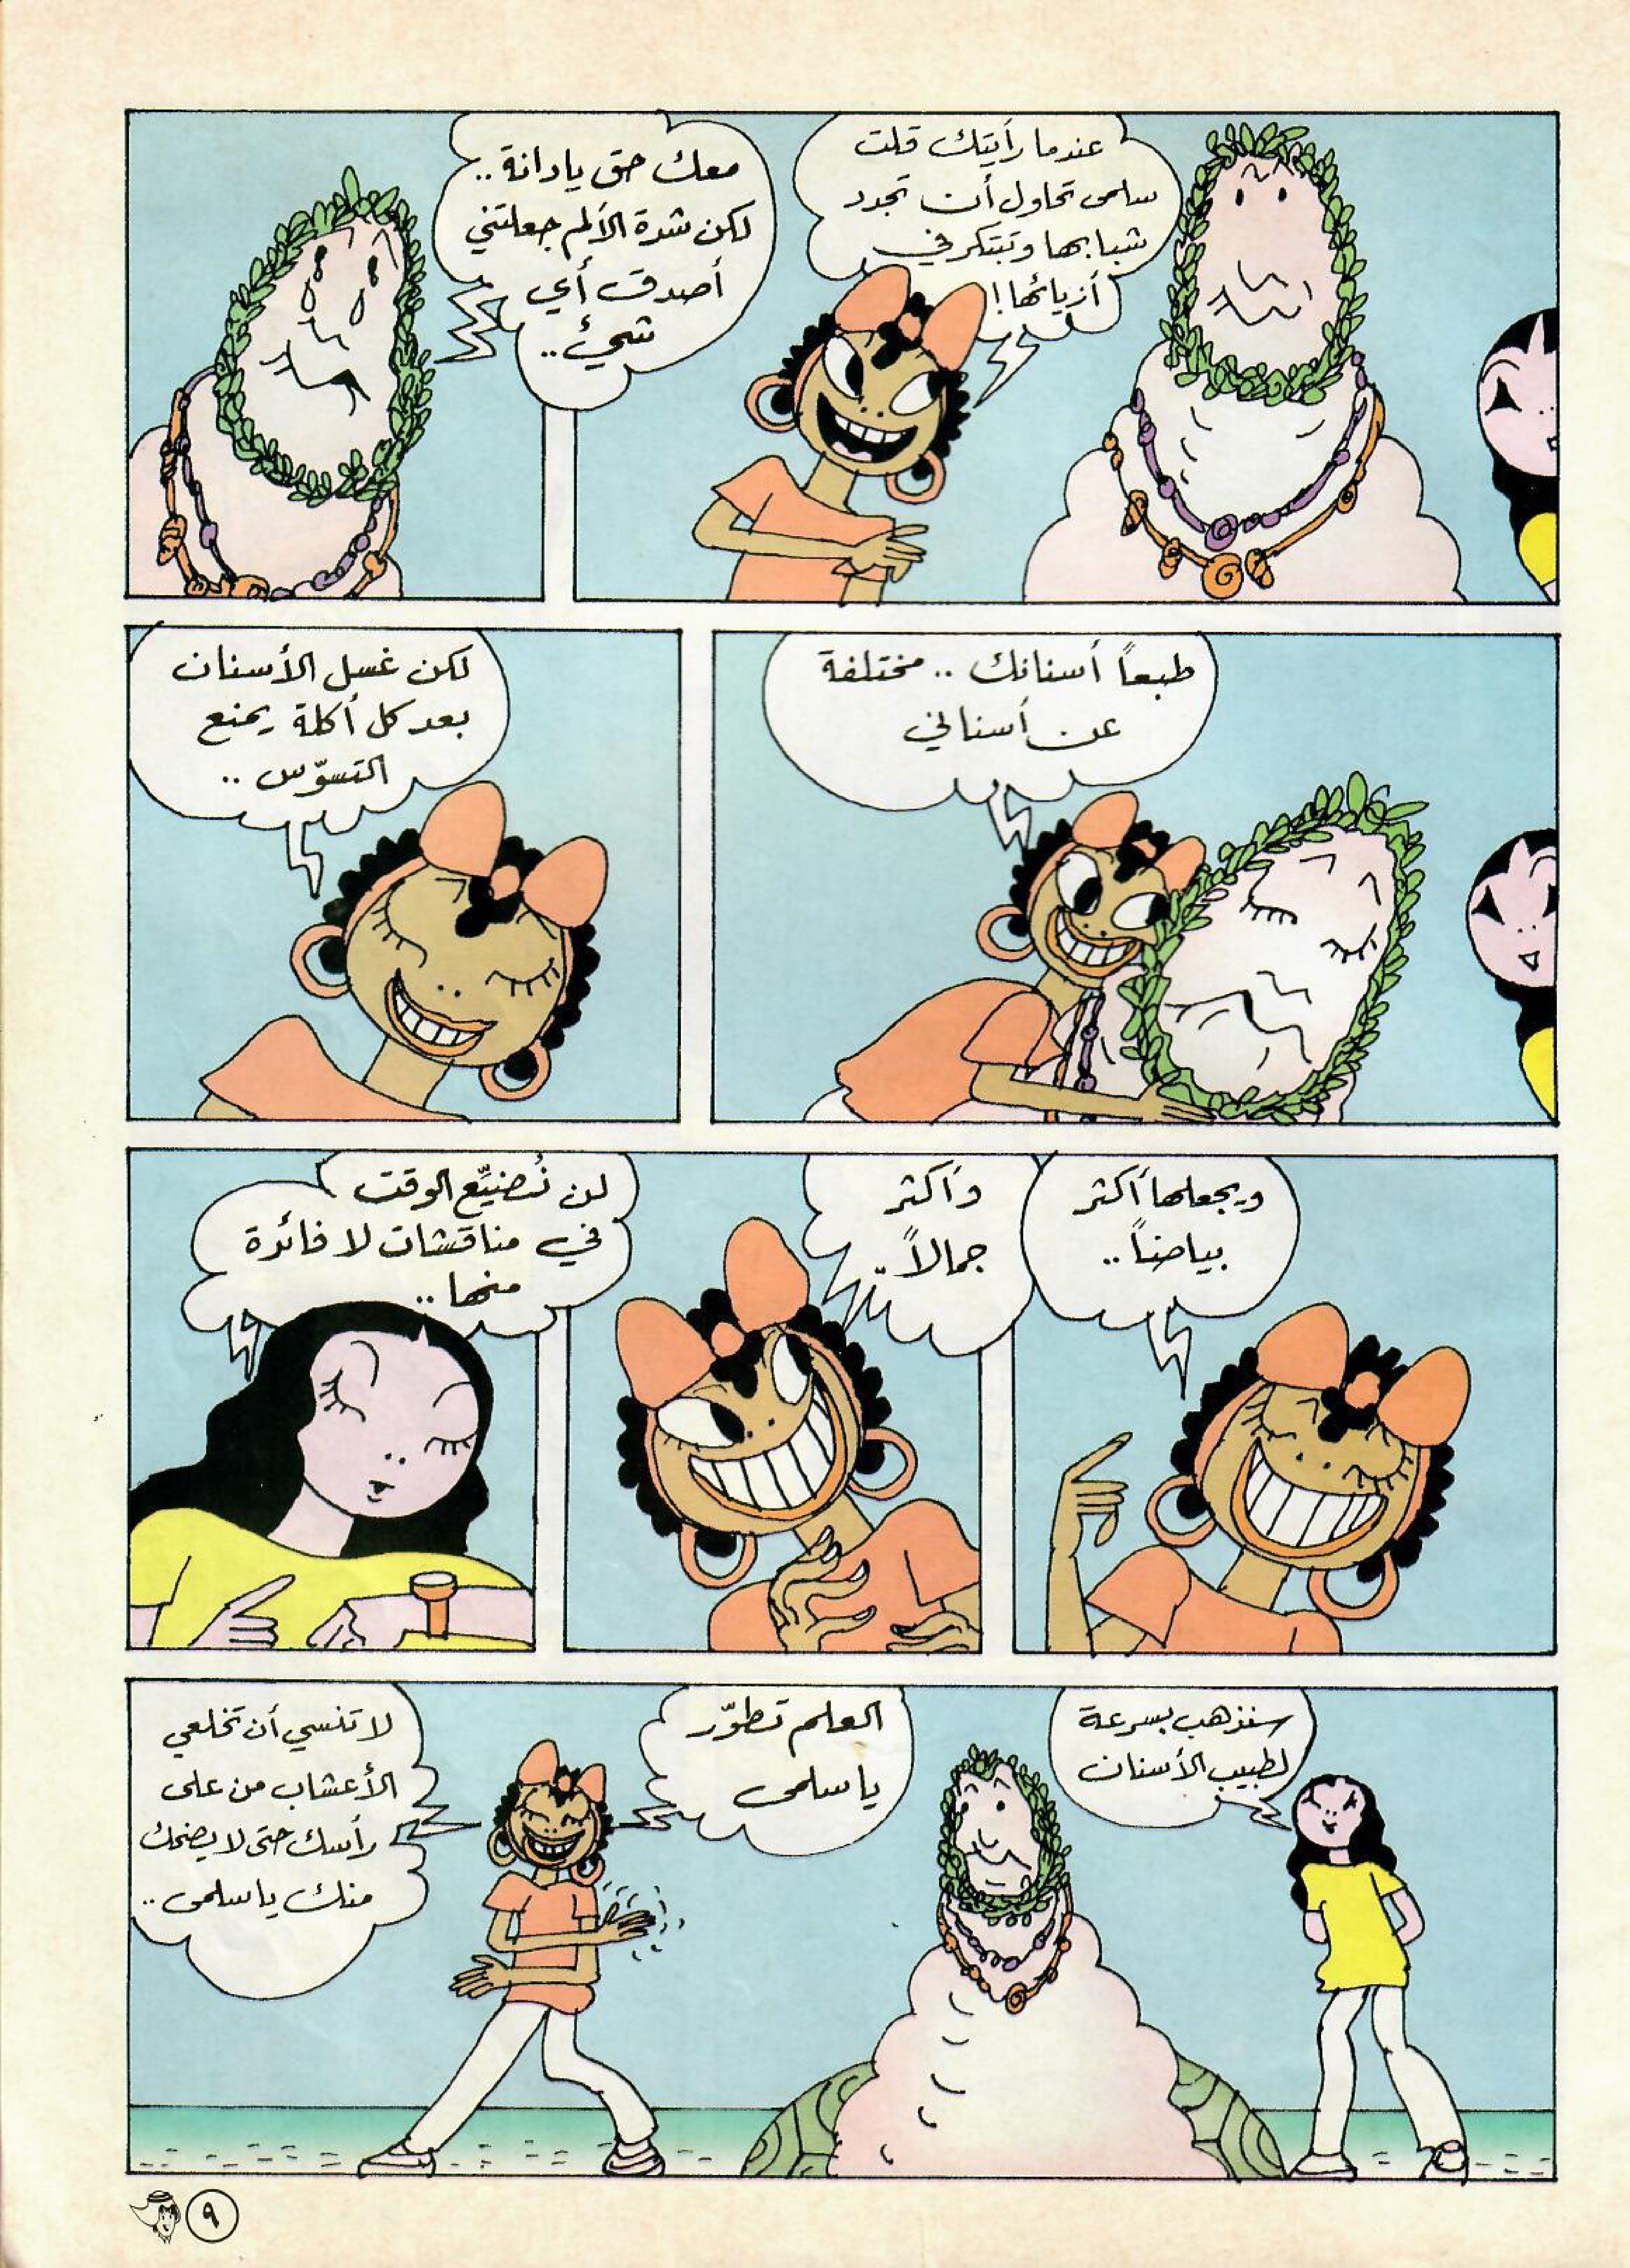 عندما رأيتك قلت
سلمى تحاول أن تجدد
شبابها وتبتكر في
أزيائها!
معك حق يا دانة..
لكن شدة الألم جعلتني
أصدق أي
شيء..
طبعاً أسنانك .. مختلفة
عن أسناني
لكن غسل الأسنان
بعد كل أكلة يمنع
التسوّس ..
ويجعلها أكثر
بياضاً ..
وأكثر
جمالاً ..
لن نُضيِّع الوقت
في مناقشات لا فائدة
منها ..
سنذهب بسرعة
لطبيب الأسنان
العلم تطوّر
يا سلمى
لا تنسي أن تخلعي
الأعشاب من على
رأسك حتى لا يضحك
منك يا سلمى ..
٩